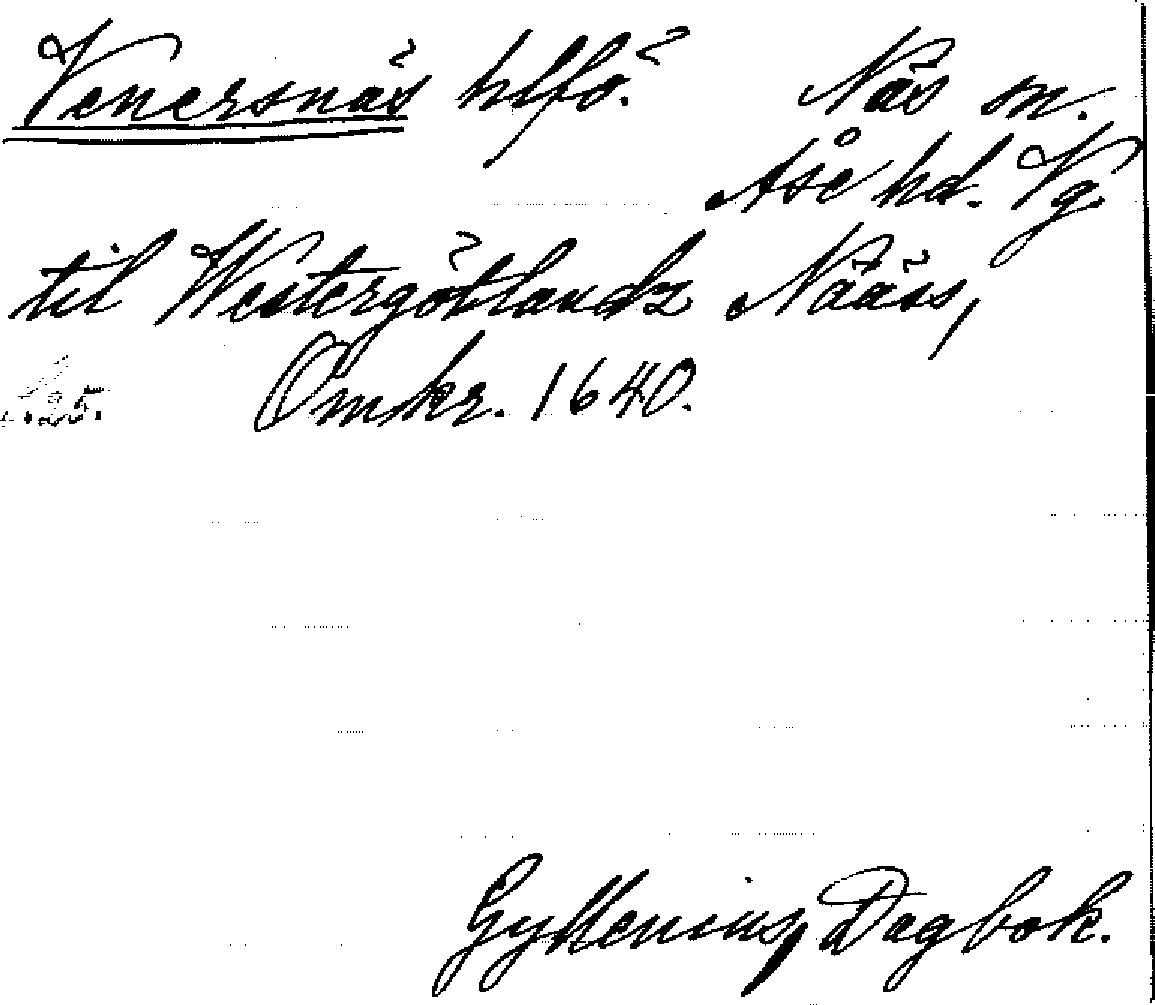 Venersnäs hlfö. Näs sn.
Åse hd. Vg.
til Westergötlandz Nääss,
25. Omkr. 1640.
Gyllenius, Dagbok.